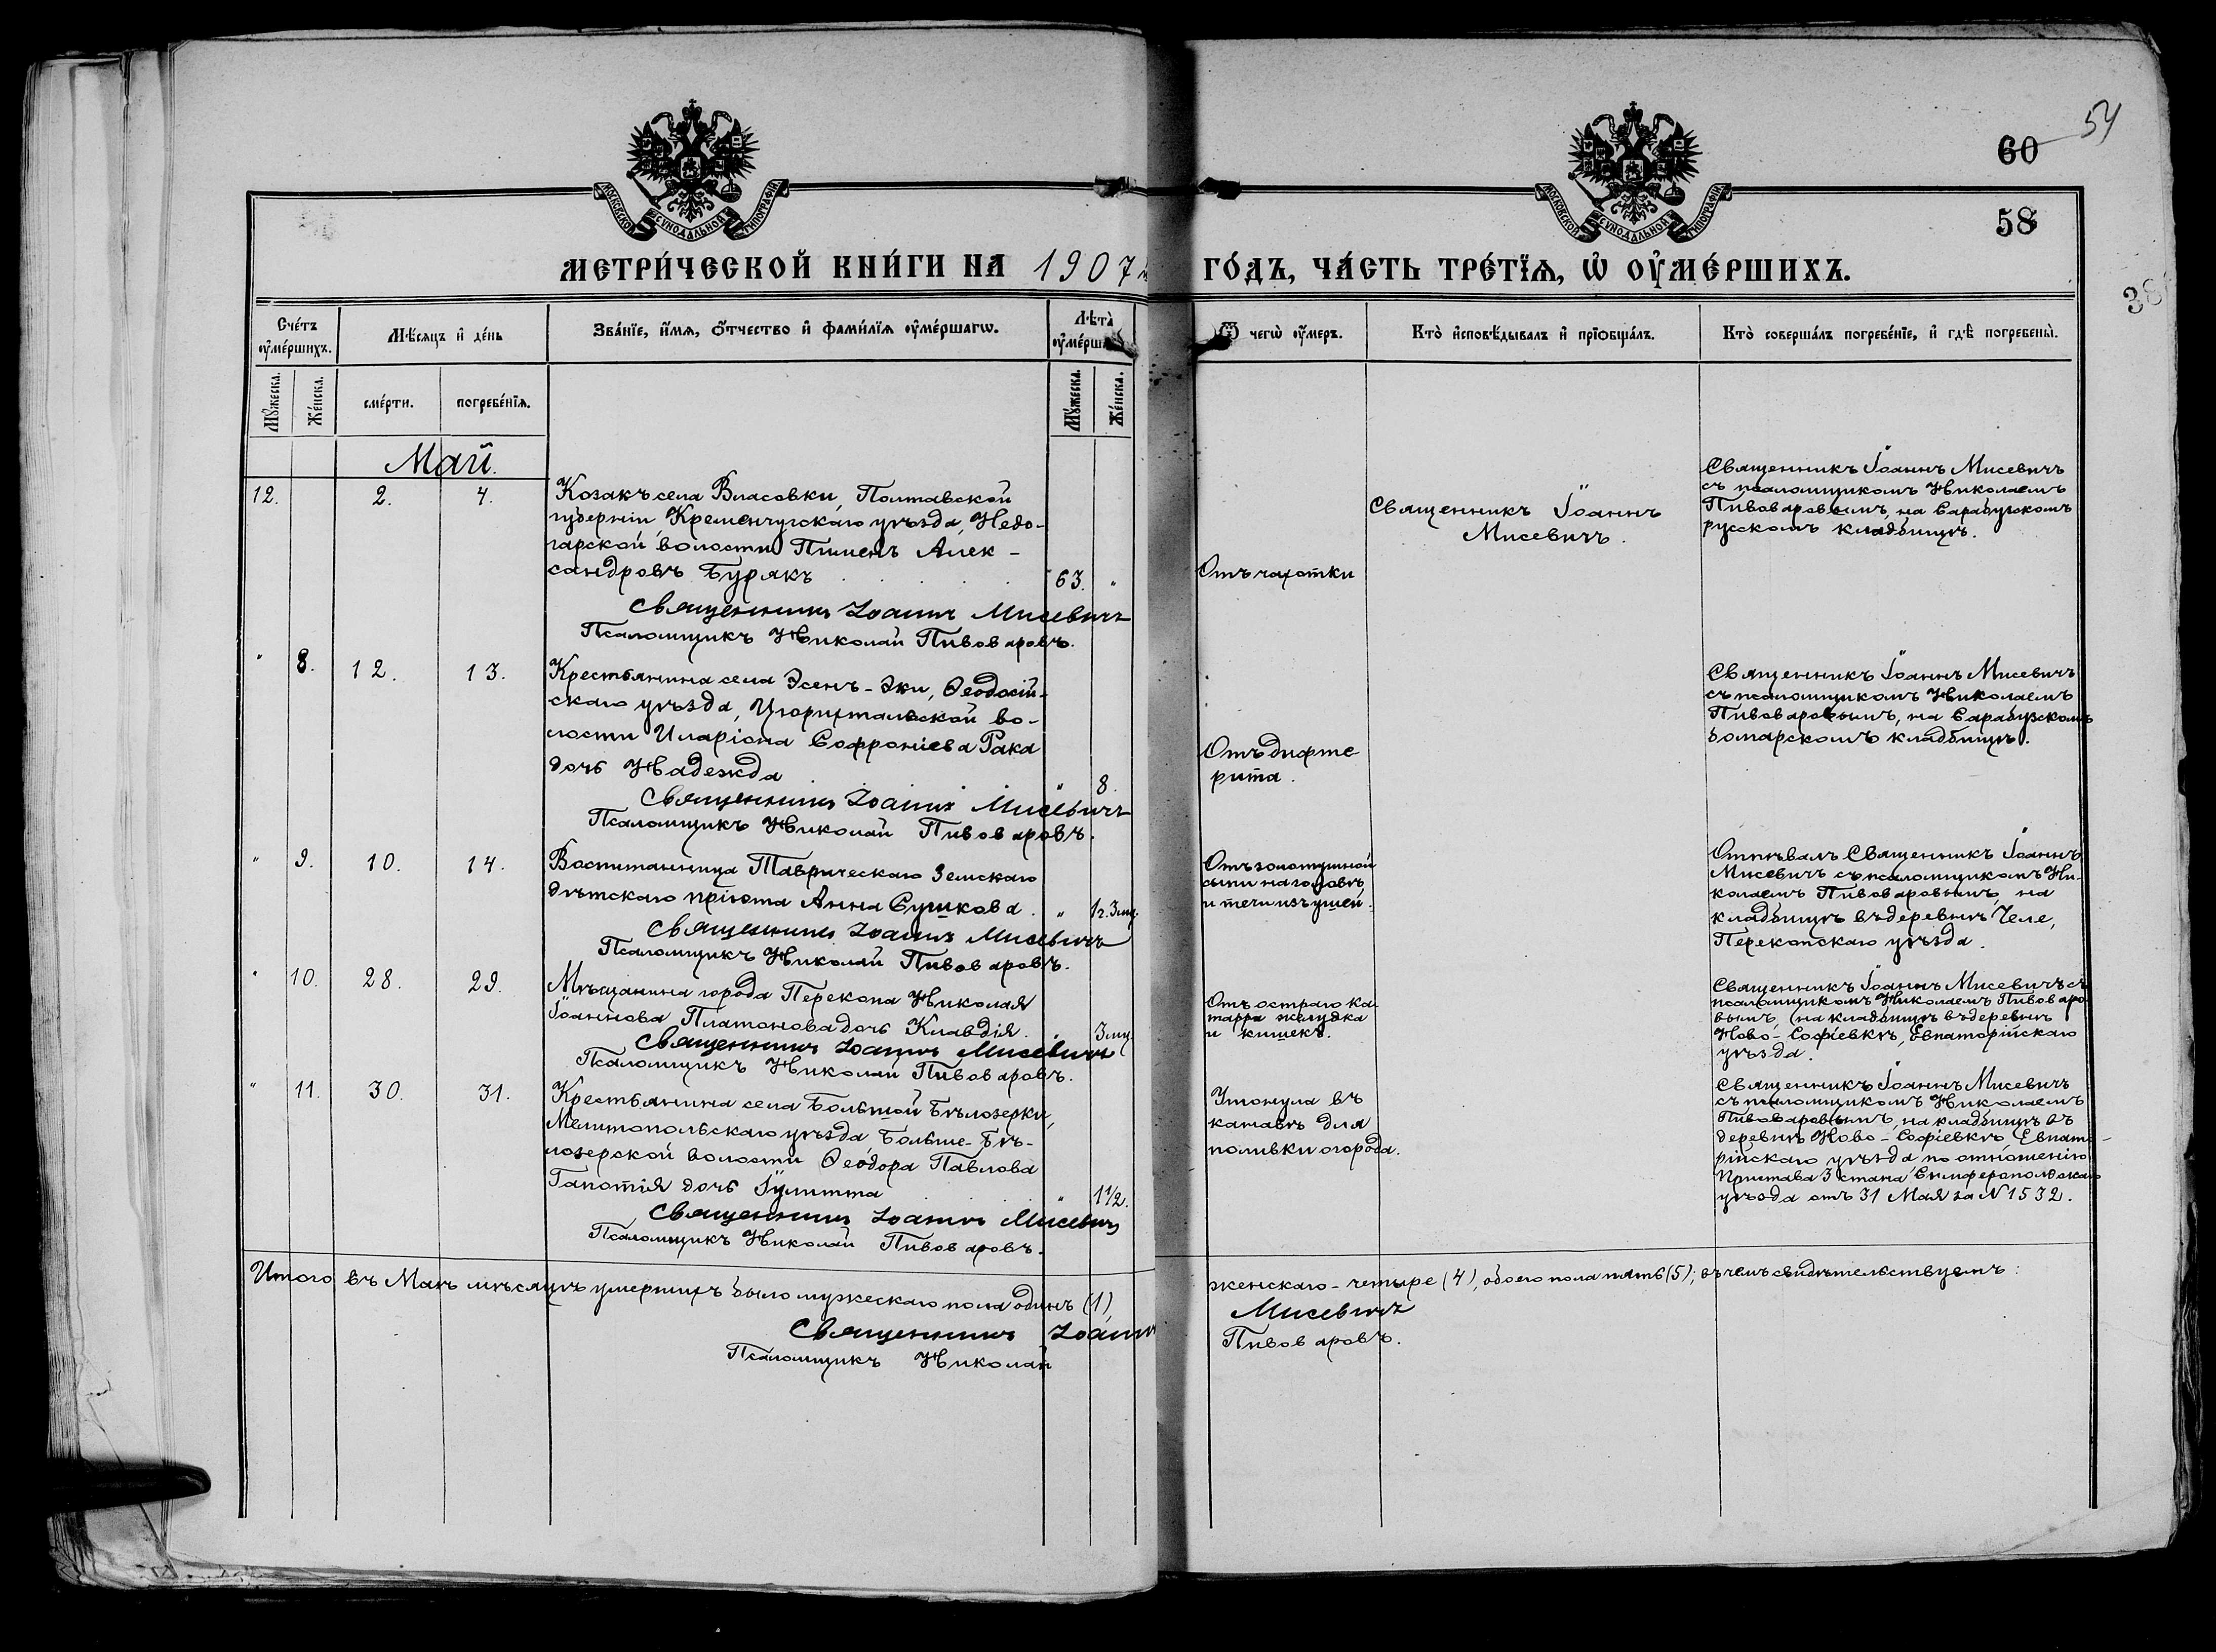 54
60
58
38
МОСКОВСКОЙ СѴНОДАЛЬНОЙ ТИПОГРАФІИ
МОСКОВСКОЙ СѴНОДАЛЬНОЙ ТИПОГРАФІИ
МЕТРИ́ЧЕСКОЙ КНИ́ГИ НА 1907й ГО́ДЪ, ЧА́СТЬ ТРЕ́ТЇѦ, Ѡ҆ ОУ҆МЕ́РШИХЪ.
Сче́тъ оу҆ме́ршихъ.
Мѣ́сяцъ и҆ де́нь
Зва́нїе, и҆́мѧ, ѻ҆́тчество и҆ фами́лїѧ оу҆ме́ршагѡ.
Лѣ́та̀ оу҆ме́рша
Ѿ чегѡ̀ оу҆́меръ.
Кто̀ и҆сповѣ́дывалъ и҆ прїѡбща́лъ.
Кто̀ соверша́лъ погребе́нїе, и҆ гдѣ̀ погребены̀.
Мꙋ́жеска.
Же́нска.
сме́рти.
погребе́нїѧ.
Мꙋ́жеска.
Же́нска.
Май.
12. 2. 4.
Козакъ села Власовки, Полтавской
губерніи Кременчугскаго уѣзда, Недо-
гарской волости Пименъ Алек-
сандровъ Бурякъ 63. "
Священникъ Іоаннъ Мисевичъ
Псаломщикъ Николай Пивоваровъ.
Отъ чахотки
Священникъ Іоаннъ
Мисевичъ.
Священникъ Іоаннъ Мисевичъ
съ псаломщикомъ Николаемъ
Пивоваровымъ, на Сарабузскомъ
русскомъ кладбищѣ.
" 8. 12. 13.
Крестьянина села Эсенъ-Эки, Ѳеодосій-
скаго уѣзда,
во-
лости Иларіона Софроніева Рака
дочь Надежда " 8.
Священникъ Іоаннъ Мисевичъ
Псаломщикъ Николай Пивоваровъ.
Отъ дифте
рита.
Священникъ Іоаннъ Мисевичъ
съ псаломщикомъ Николаемъ
Пивоваровымъ, на Сарабузскомъ
болгарскомъ кладбищѣ.
" 9. 10. 14.
Воспитанница Таврическаго Земскаго
дѣтскаго пріюта Анна Сушкова. " 1г. 3мц.
Священникъ Іоаннъ Мисевичъ
Псаломщикъ Николай Пивоваровъ.
Отъ золотушной
сыпи на головѣ
и течи изъ ушей.
Отпѣвалъ Священникъ Іоаннъ
Мисевичъ съ псаломщикомъ Ни-
колаемъ Пивоваровымъ, на
кладбищѣ въ деревнѣ Челе,
Перекопскаго уѣзда.
" 10. 28. 29.
Мѣщанина города Перекопа Николая
Іоаннова Платонова дочь Клавдія. " 3мц.
Священникъ Іоаннъ Мисевичъ
Псаломщикъ Николай Пивоваровъ.
Отъ остраго ка-
тарра желудка
и кишекъ.
Священникъ Іоаннъ Мисевичъ съ
псаломщикомъ Николаемъ Пивоваро-
вымъ, на кладбищѣ въ деревнѣ
Ново-Софіевкѣ, Евпаторійскаго
уѣзда.
" 11. 30. 31.
Крестьянина села Большой Бѣлозерки,
Мелитопольскаго уѣзда Больше-Бѣ-
лозерской волости Ѳеодора Павлова
Гапотія дочь Іулитта " 1½.
Священникъ Іоаннъ Мисевичъ
Псаломщикъ Николай Пивоваровъ.
Утонула въ
катавѣ для
поливки огорода.
Священникъ Іоаннъ Мисевичъ
съ псаломщикомъ Николаемъ
Пивоваровымъ, на кладбищѣ въ
деревнѣ Ново-Софіевкѣ, Евпато-
рійскаго уѣзда по отношенію
Пристава 3 стана Симферопольскаго
уѣзда отъ 31 Мая за № 1532.
Итого въ Маѣ мѣсяцѣ умершихъ было мужескаго пола одинъ (1), женскаго - четыре (4), обоего пола пять (5); въ чемъ свидѣтельствуемъ:
Священникъ Іоаннъ Мисевичъ
Псаломщикъ Николай Пивоваровъ.